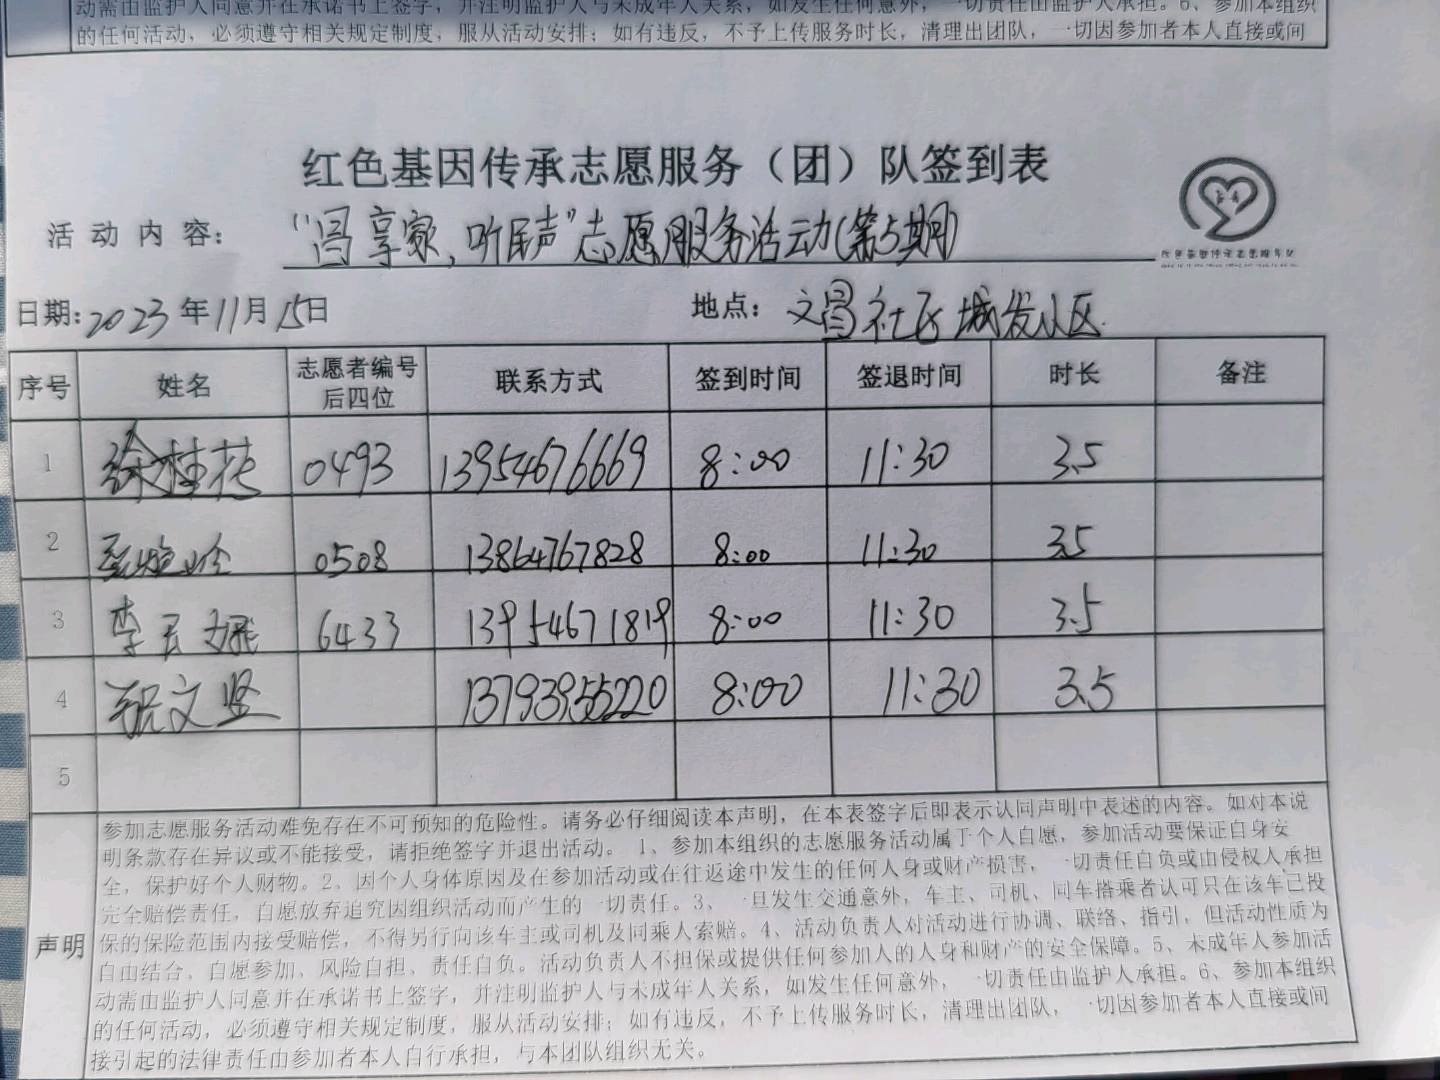 动需由监护人同意并在承诺书上签字，并注明监护人与未成年人关系，如发生任何意外，一切责任由监护人承担。6、参加本组织
的任何活动，必须遵守相关规定制度，服从活动安排；如有违反，不予上传服务时长，清理出团队，一切因参加者本人直接或间
红色基因传承志愿服务（团）队签到表
活动内容： “昌享家，听民声”志愿服务活动（第5期）
日期：2023年11月15日 地点：文昌社区城发小区
序号 姓名 志愿者编号后四位 联系方式 签到时间 签退时间 时长 备注
1 徐桂花 0493 13954676669 8:00 11:30 3.5
2 0508 13864767828 8:00 11:30 3.5
3 李 6433 13954671819 8:00 11:30 3.5
4 文竖 13793955220 8:00 11:30 3.5
5
声明
参加志愿服务活动难免存在不可预知的危险性。请务必仔细阅读本声明，在本表签字后即表示认同声明中表述的内容。如对本说
明条款存在异议或不能接受，请拒绝签字并退出活动。 1、参加本组织的志愿服务活动属于个人自愿，参加活动要保证自身安
全，保护好个人财物。2、因个人身体原因及在参加活动或在往返途中发生的任何人身或财产损害，一切责任自负或由侵权人承担
完全赔偿责任，自愿放弃追究因组织活动而产生的一切责任。3、一旦发生交通意外，车主、司机、同车搭乘者认可只在该车已投
保的保险范围内接受赔偿，不得另行向该车主或司机及同乘人索赔。4、活动负责人对活动进行协调、联络、指引，但活动性质为
自由结合、自愿参加、风险自担、责任自负。活动负责人不担保或提供任何参加人的人身和财产的安全保障。5、未成年人参加活
动需由监护人同意并在承诺书上签字，并注明监护人与未成年人关系，如发生任何意外，一切责任由监护人承担。6、参加本组织
的任何活动，必须遵守相关规定制度，服从活动安排；如有违反，不予上传服务时长，清理出团队，一切因参加者本人直接或间
接引起的法律责任由参加者本人自行承担，与本团队组织无关。